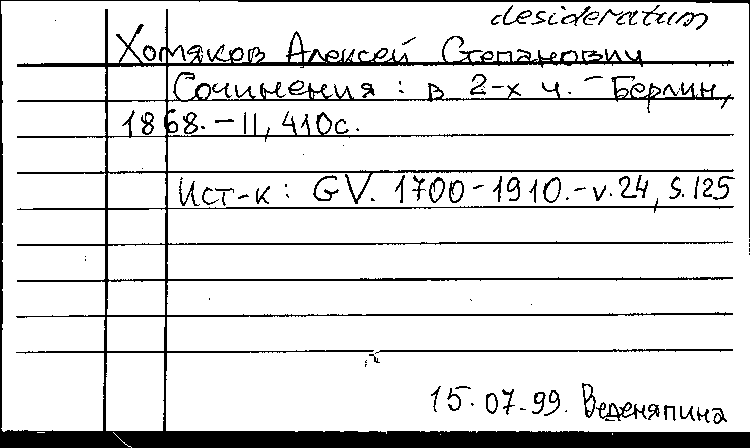 desideratum
Хомяков Алексей Степанович
Сочинения: в 2-х ч. – Берлин,
1868. – II, 410с.
Ист-к: GV. 1700-1910. – v.24, S.125
15.07.99. Веденяпина